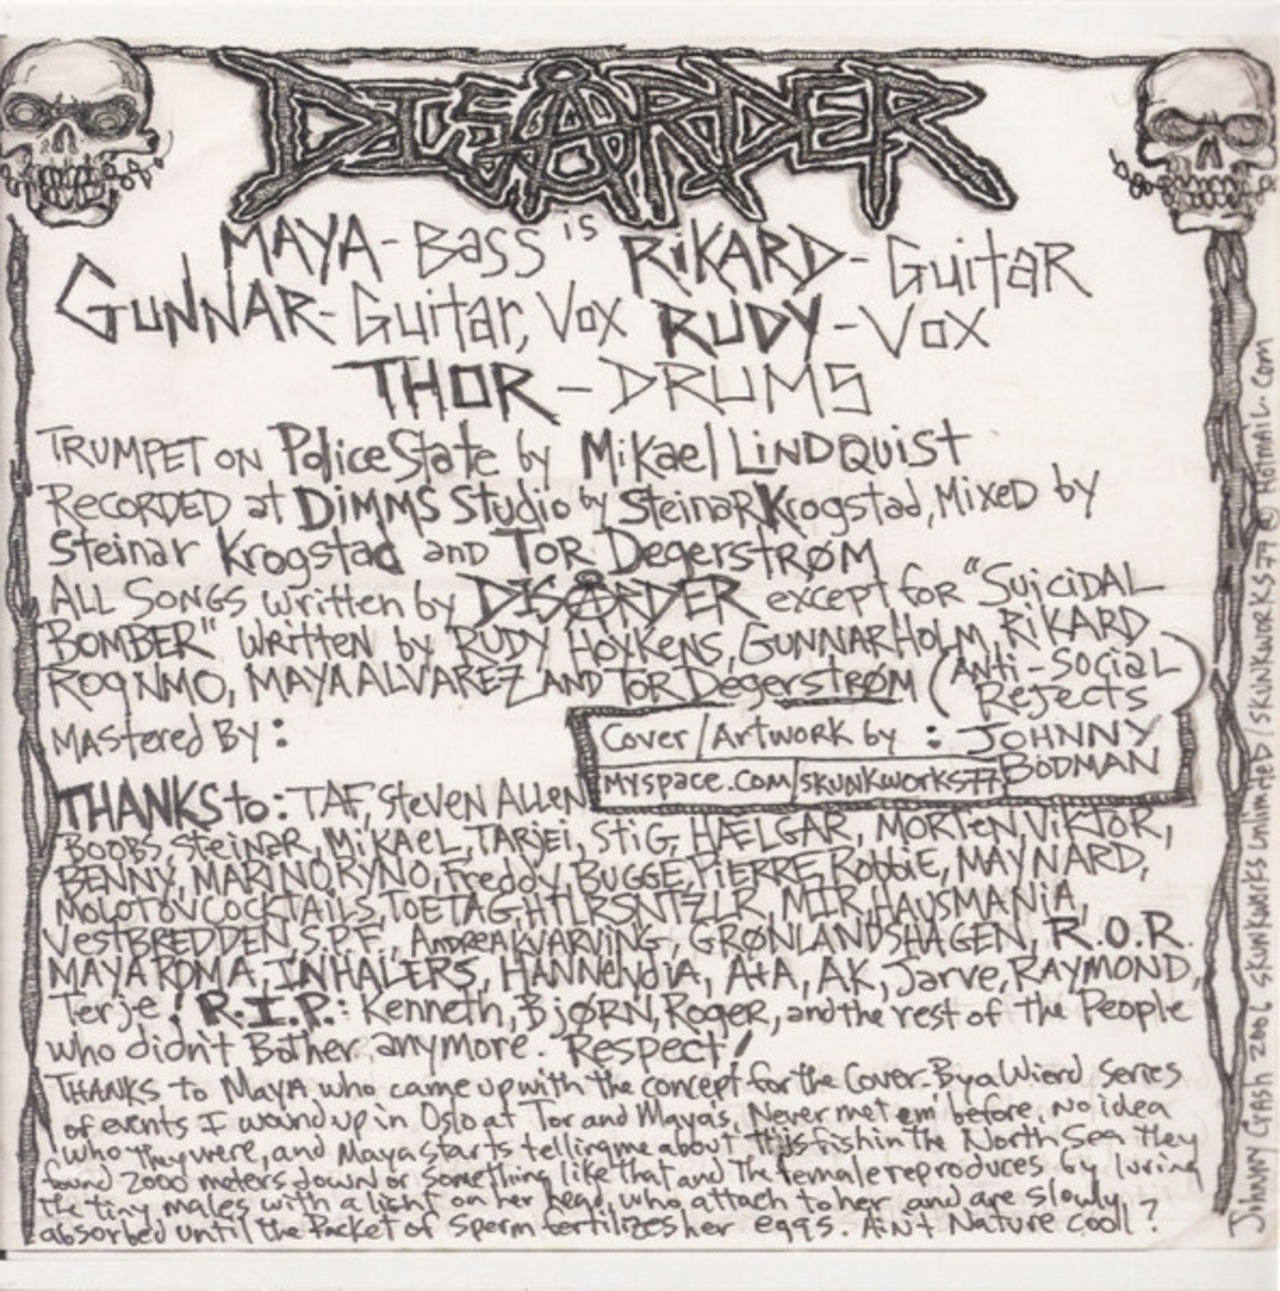 DISORDER
MAYA - BASS is RIKARD - GUITAR
GUNNAR - Guitar, Vox RUDY - VOX
THOR - DRUMS
TRUMPET ON Police State by Mikael LINDQUIST
RECORDED at DIMMS Studio by Steinar Krogstad, Mixed by
Steinar Krogstad and TOR DegerstrØM
ALL SONGS written by DISORDER except for "SUiCiDAL
BOMBER" written by RUDY HOYKENS, GUNNAR HOLM, RiKARD
ROGNMO, MAYA ALVAREZ AND TOR DegerstrØM (Anti-Social
Rejects)
Mastered By:
Cover/Artwork by : JOHNNY
BODMAN
myspace.com/skunkworks77
THANKS to: TAF, Steven ALLEN
BOOBS, Steinar, MiKaeL, TARjei, StiG, HÆLGAR, MORTEN, ViKTOR,
BENNY, MARINO, RYNO, Freddy, BUGGE, PiERRE, Robbie, MAYNARD,
MOLOTOV COCKTAiLS, TOETAG, HTLRSNTZLR, MIR, HAUSMANiA,
VestBREDDEN, S.P.F., AndreaKVARViNG, GRØNLANDSHAGEN, R.O.R.
MAYA ROMA, INHALERS, HANNelydiA, A+A, AK, Jarve, RAYMOND,
Terje! R.I.P.: Kenneth, BjØRN, Roger, and the rest of the People
who didn't Bother anymore. Respect!
THANKS to MAYA who came up with the concept for the Cover. By a Wierd series
of events I wound up in Oslo at Tor and Maya's, Never met em before, no idea
who they were, and Maya starts telling me about this fish in the North Sea they
found 2000 meters down or something like that and the female reproduces by luring
the tiny males with a light on her head, who attach to her and are slowly
absorbed until the Packet of Sperm fertilizes her eggs. Ain't Nature cool!?
Johnny Crash 2006 Skunkworks Unlimited/SKUNKWORKS77@HOTMAIL.COM